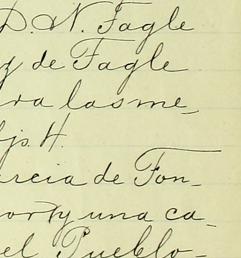 D. N. Fagle
y de Fagle
ra las me_
js. H.
arcia de Fon_
por ty una ca_
el Pueblo_